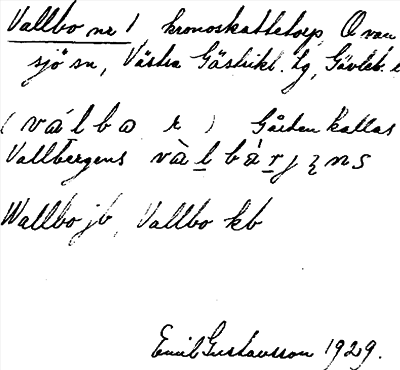 Vallbo nr 1, kronoskattetorp, Ovan
sjö sn, Västra Gästrikl. tg, Gävleb. l
(vál b o r) Gården kallas
Vallbergens và l b á r j ȩ n s
Wallbo jb, Vallbo kb
Emil Gustavsson 1929.